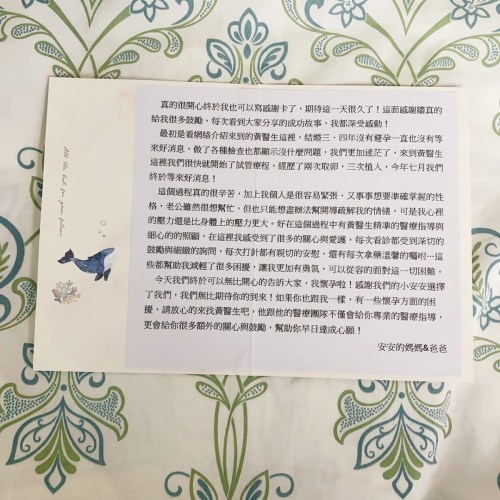 All the best for your future.
真的很開心終於我也可以寫感謝卡了，期待這一天很久了！這面感謝牆真的
給我很多鼓勵，每次看到大家分享的成功故事，我都深受感動！
最初是看網絡介紹來到的黃醫生這裡，結婚三、四年沒有避孕一直也沒有等
來好消息，做了各種檢查也都顯示沒什麼問題，我們更加迷茫了，來到黃醫生
這裡我們很快就開始了試管療程，經歷了兩次取卵，三次植入，今年七月我們
終於等來好消息！
這個過程真的很辛苦，加上我個人是很容易緊張、又事事想要準確掌握的性
格，老公雖然很想幫忙，但也只能想盡辦法幫開導疏解我的情緒，可是我心裡
的壓力還是比身體上的壓力更大。好在這個過程中有黃醫生精準的醫療指導與
細心的的照顧，在這裡我感受到了很多的關心與愛護，每次看診都受到深切的
鼓勵與細緻的詢問，每次打針都有親切的安慰，還有每次拿藥溫馨的囑咐...這
些都幫助我減輕了很多困擾，讓我更加有勇氣，可以從容的面對這一切困難。
今天我們終於可以無比開心的告訴大家，我懷孕啦！感謝我們的小安安選擇
了我們，我們無比期待你的到來！如果你也跟我一樣，有一些懷孕方面的困
擾，請放心的來找黃醫生吧，他跟他的醫療團隊不僅會給你專業的醫療指導，
更會給你很多額外的關心與鼓勵，幫助你早日達成心願！
安安的媽媽&爸爸